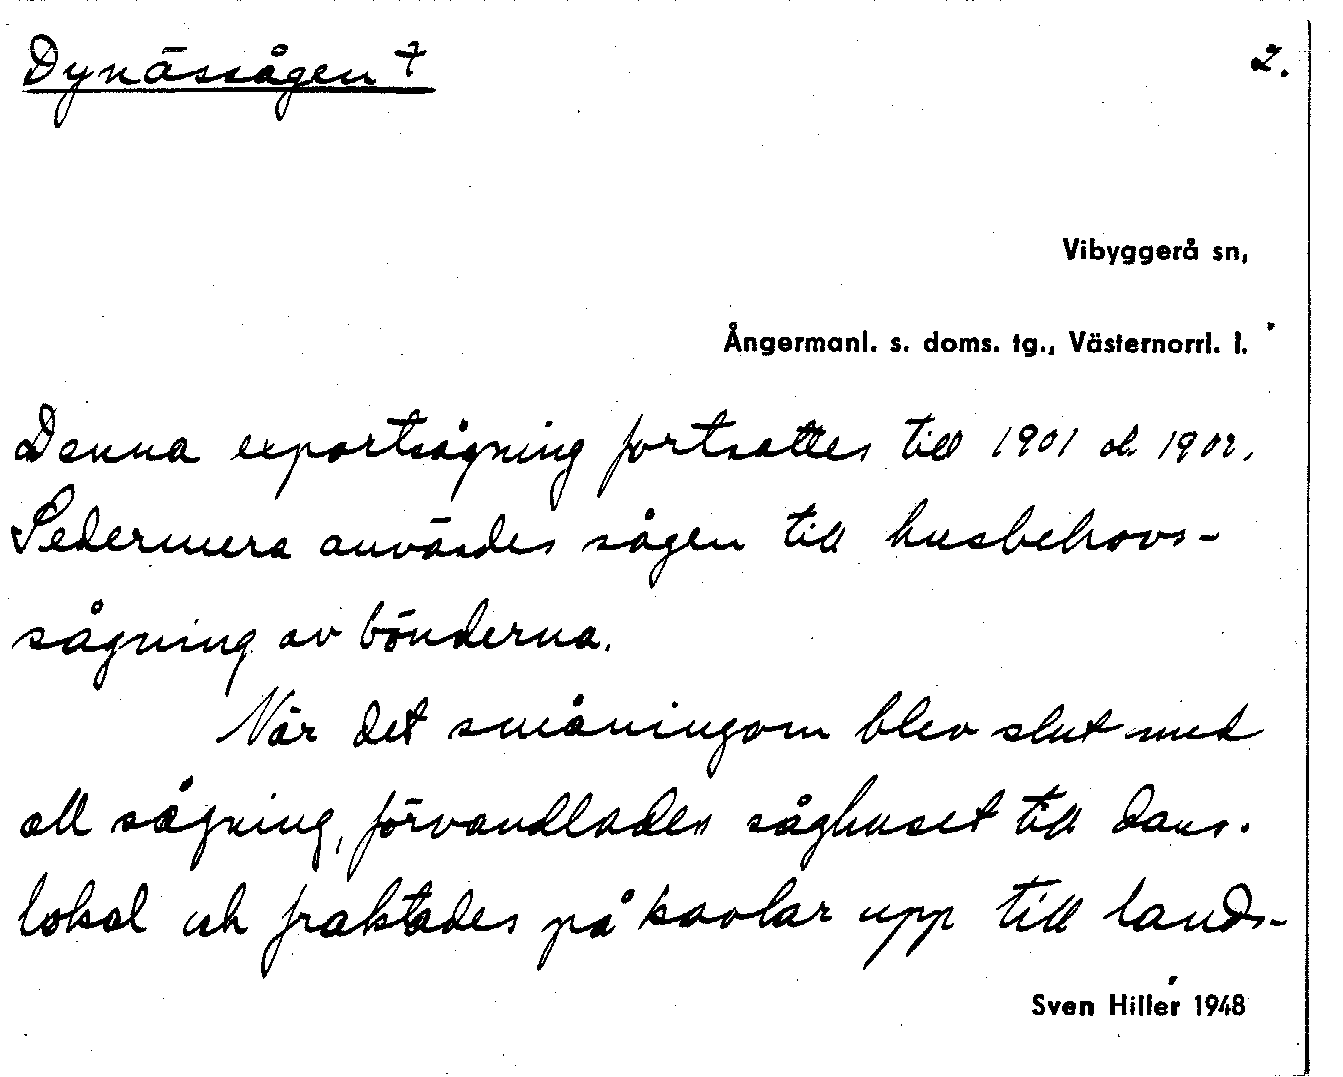 Dynässågen † 2.
Vibyggerå sn,
Ångermanl. s. doms. tg., Västernorrl. l.
Denna exportsågning fortsattes till 1901 el. 1902.
Sedermera användes sågen till husbehovs-
sågning av bönderna.
När det småningom blev slut med
all sågning, förvandlades såghuset till dans-
lokal och fraktades på kavlar upp till lands-
Sven Hiller 1948